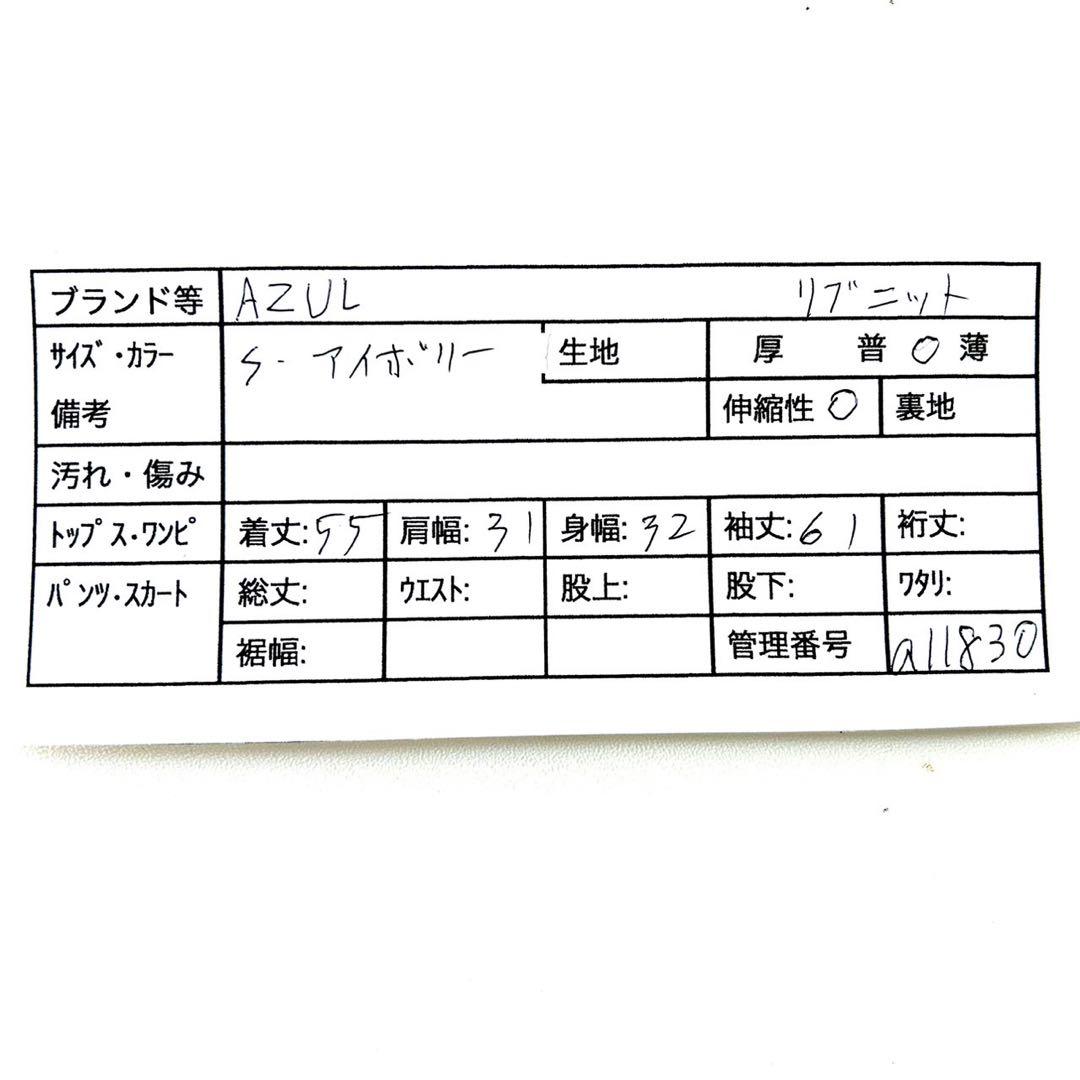 ブランド等 AZUL リブニット
ｻｲｽﾞ・ｶﾗｰ S・アイボリー 生地 厚 普 ○ 薄
備考 伸縮性 ○ 裏地
汚れ・傷み
ﾄｯﾌﾟｽ・ﾜﾝﾋﾟ 着丈:55 肩幅:31 身幅:32 袖丈:61 裄丈:
ﾊﾟﾝﾂ・ｽｶｰﾄ 総丈: ｳｴｽﾄ: 股上: 股下: ﾜﾀﾘ:
裾幅: 管理番号 a11830